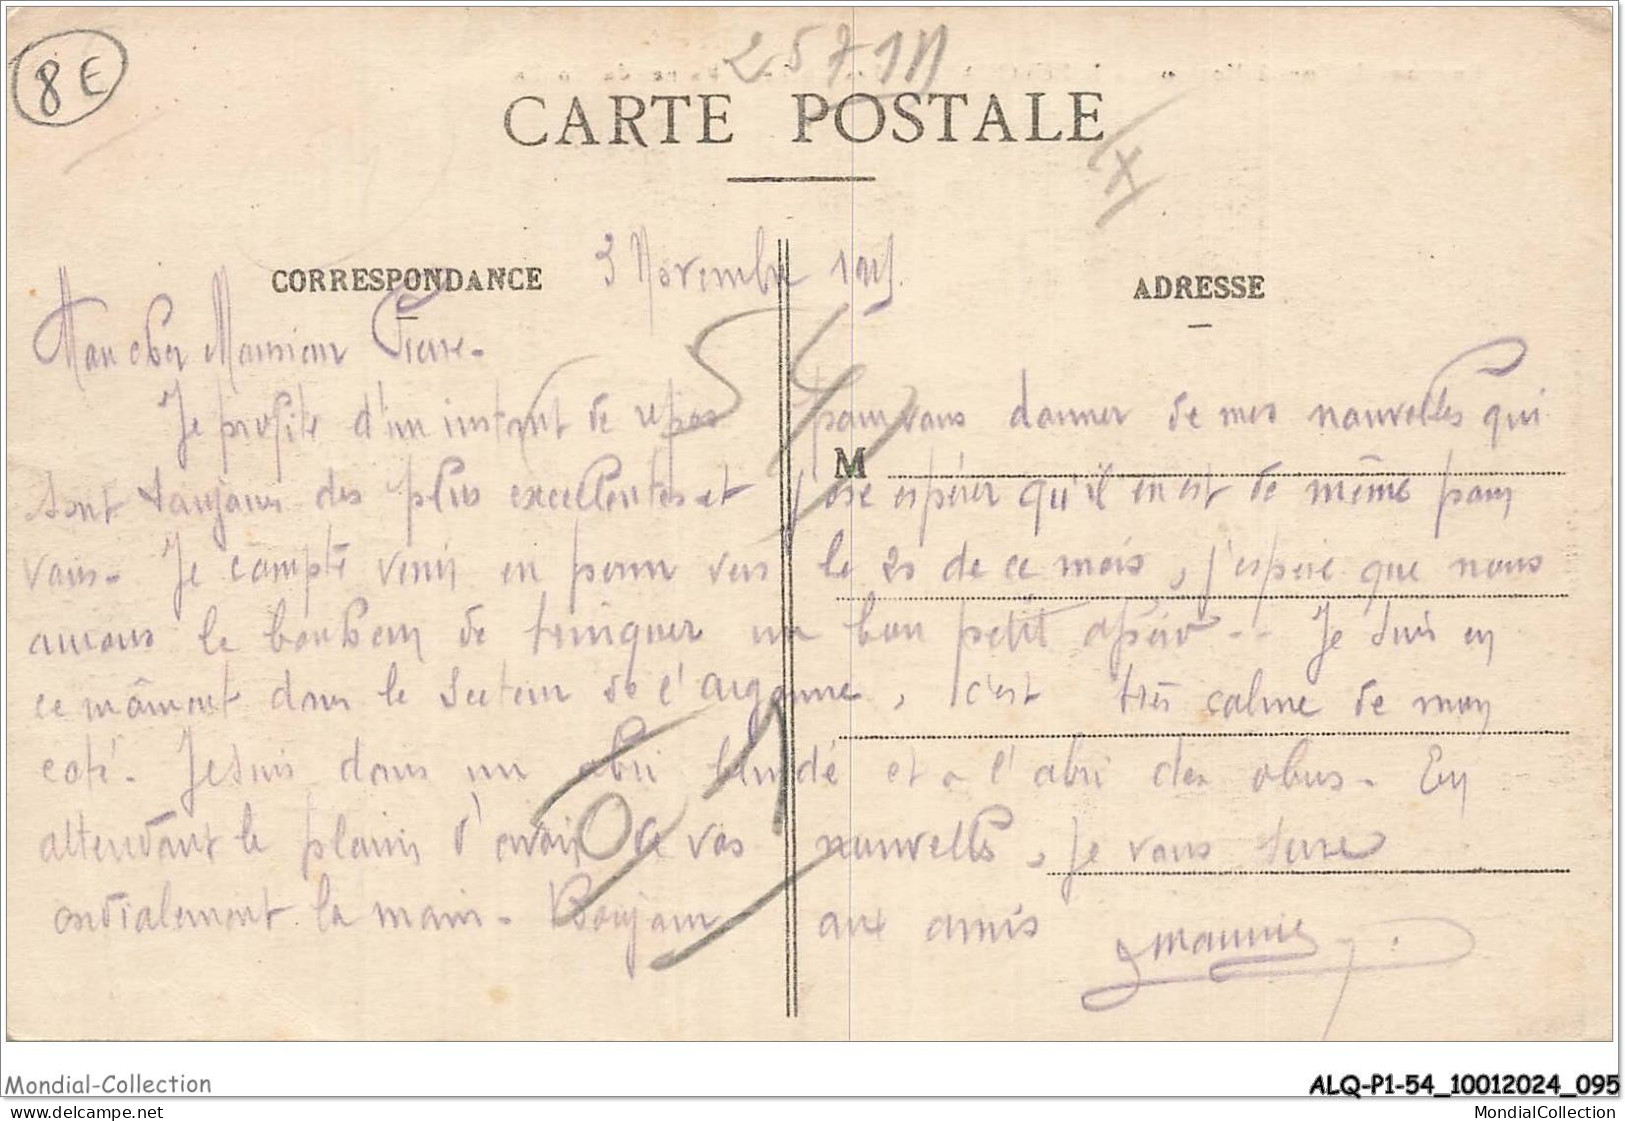 8E
25711
CARTE POSTALE
CORRESPONDANCE
ADRESSE
3 Novembre 1915
Mon cher Monsieur Pierre.
Je profite d'un instant de repos pour vous donner de mes nouvelles qui
M
sont toujours des plus excellentes et j'ose espérer qu'il en est de même pour
vous. Je compte venir en perm vers le 20 de ce mois, j'espère que nous
aurons le bonheur de trinquer un bon petit apéro -- Je suis en
ce moment dans le secteur de l'Argonne, c'est très calme de mon
coté. Je suis dans un abri blindé et a l'abri des obus. En
attendant le plaisir d'avoir de vos nouvelles, je vous serre
cordialement la main. Bonjour aux amis
Mondial-Collection
ALQ-P1-54_10012024_095
delcampe.net
MondialCollection